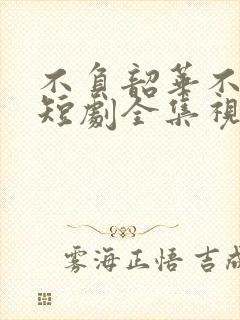 不負韶華不
短劇全集視
雾海正悟 吉成